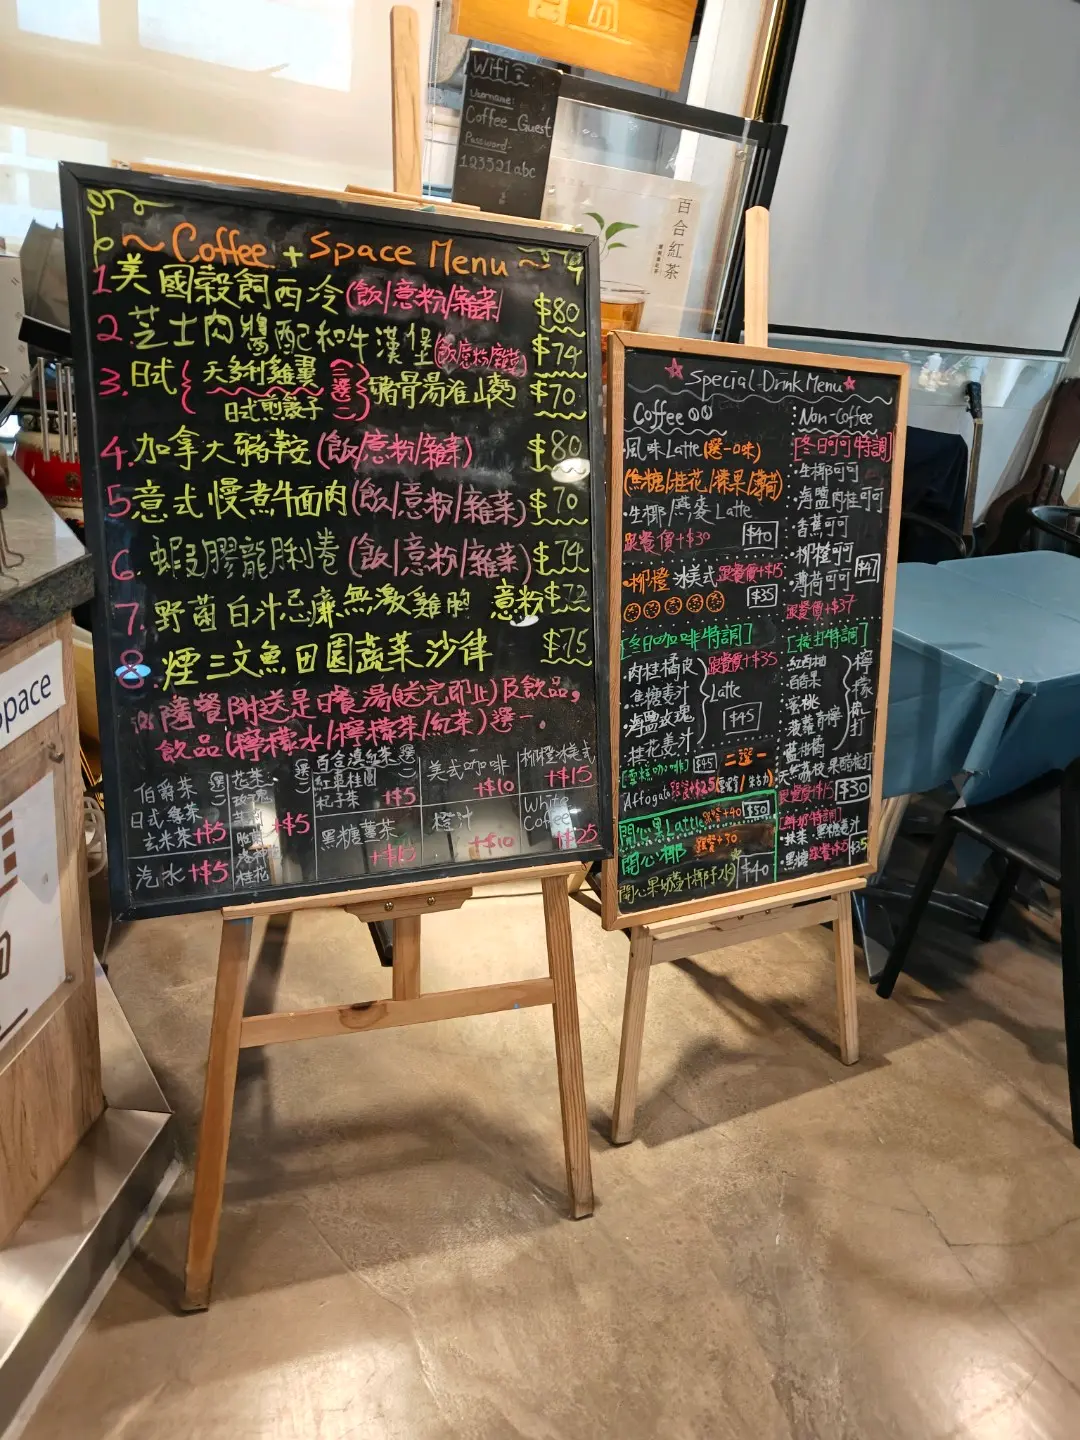 Wifi
Username:
Coffee_Guest
Password:
123321abc
百合紅茶
~ Coffee + Space Menu ~
1 美國穀飼西冷(飯/意粉/雜菜) $80
2. 芝士肉醬配和牛漢堡(飯/意粉/雜菜) $74
3. 日式{天多利雞翼 日式煎餃子 三選二}豬骨湯淮山麵 $70
4. 加拿大豬鞍(飯/意粉/雜菜) $80
5 意式慢煮牛面肉(飯/意粉/雜菜) $70
6. 蝦膠龍脷卷(飯/意粉/雜菜) $74
7. 野菌白汁忌廉無激雞胸 意粉 $72
8. 煙三文魚田園蔬菜沙律 $75
隨餐附送是日餐湯(送完即止)及飲品,
飲品(檸檬水/檸檬茶/紅茶)選一.
伯爵茶
日式綠茶
玄米茶 +$5
汽水 +$5
花茶
玫瑰
桂花
+$5
百合滇紅茶
紅棗桂圓
杞子茶 +$5
黑糖薑茶
美式咖啡 +$10
橙汁 +$10
柳橙冰美式 +$15
White Coffee +$25
Space
Special Drink Menu
Coffee
·風味Latte(選一味)
(焦糖/桂花/榛果/薄荷)
·生椰/燕麥Latte
跟餐價+$30 $40
·柳橙冰美式 跟餐+$15
$35
[冬日咖啡特調]
·肉桂橘皮
·焦糖薑汁
·海鹽玫瑰
·桂花薑汁
Latte
跟餐價+$35
$45
[雪糕咖啡] $45 二選一
Affogato 跟餐+$25
開心果Latte 跟餐+40 $50
開心椰 跟餐+30
$40
Non-Coffee
[冬日可可特調]
·生椰可可
·海鹽肉桂可可
·香蕉可可
·柳橙可可
·薄荷可可 $47
跟餐價+$37
[梳打特調]
·紅西柚
·百香果
·蜜桃
·菠蘿青檸
·藍柑橘
檸檬梳打
跟餐價+$15 $30
[鮮奶特調]
·抹茶 ·黑糖薑汁
·黑糖 $35